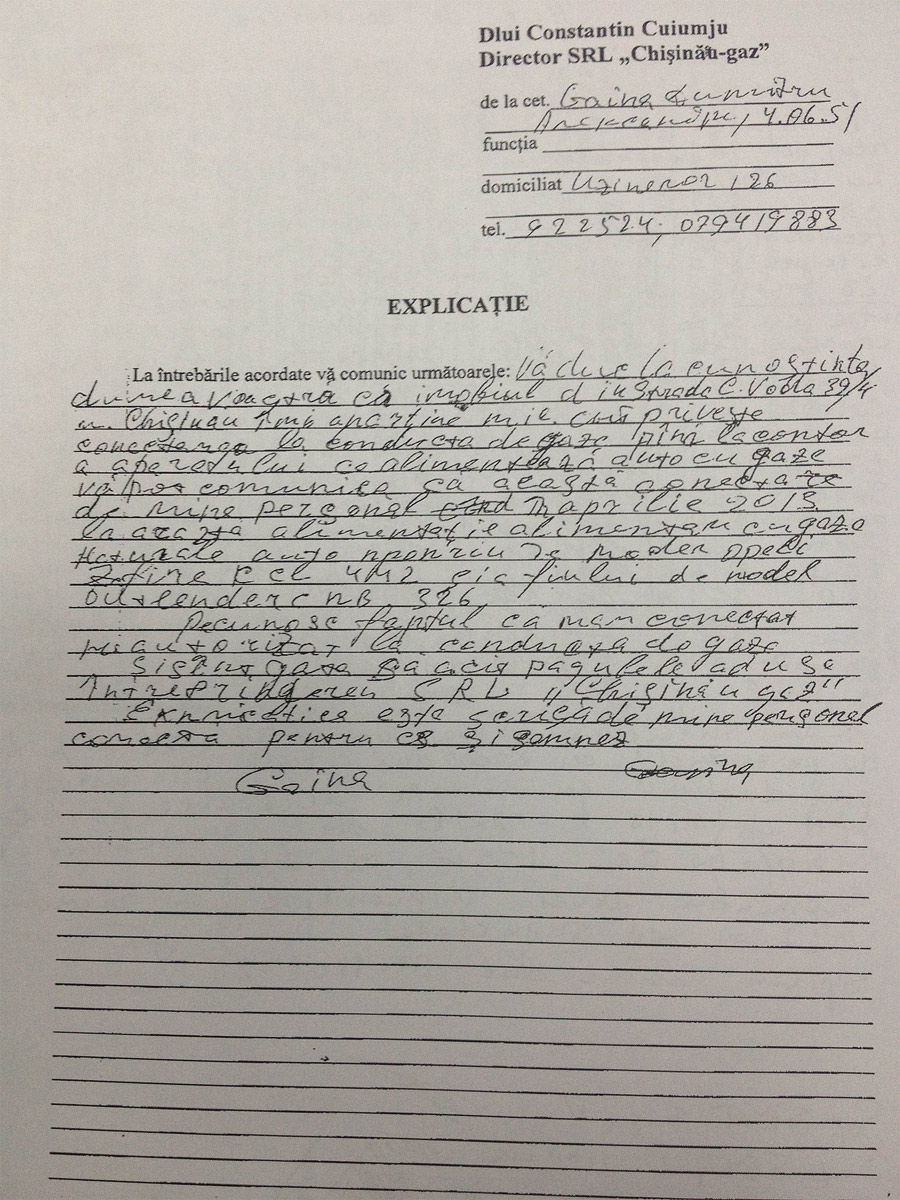 Dlui Constantin Cuiumju
Director SRL „Chişinău-gaz”
de la cet. Gaina Dumitru
4.06.51
funcţia
domiciliat Uzinelor 126
tel. 922524, 079419883
EXPLICAŢIE
La întrebările acordate vă comunic următoarele: Vă duc la cunostinta
dumeavoastra că imobiul din strada C. Voda 39/4
m. Chişinau îmi aparţine mie. cît priveşte
conectarea la conducta de gaze pînă la contor
a aparatului ce alimentează auto cu gaze
vă pot comunica ca această conectare
de mine personal aprilie 2013
la aceasta alimentaţie alimentam cu gaze
naturale auto propriu de model opeli
4M2 şi a fiului de model
NB 326
Recunosc faptul ca mam conectat
neautorizat la conducta de gaze
şi sînt gata sa acir pagubele aduse
Întreprinderea SRL „Chişinău gaz”
Explicatiea este scrisă de mine personel
corecta pentru ce şi semnez
Gaina